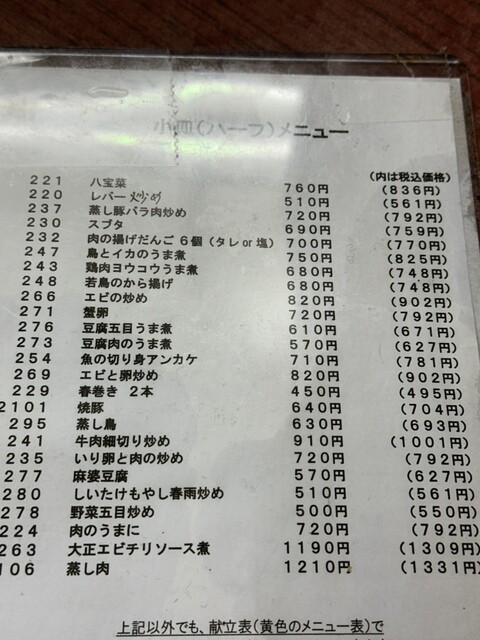 小皿(ハーフ)メニュー
(内は税込価格)
221 八宝菜 760円 (836円)
220 レバー炒め 510円 (561円)
237 蒸し豚バラ肉炒め 720円 (792円)
230 スブタ 690円 (759円)
232 肉の揚げだんご 6個 (タレor塩) 700円 (770円)
247 鳥とイカのうま煮 750円 (825円)
243 鶏肉ヨウコウうま煮 680円 (748円)
248 若鳥のから揚げ 680円 (748円)
266 エビの炒め 820円 (902円)
271 蟹卵 720円 (792円)
276 豆腐五目うま煮 610円 (671円)
273 豆腐肉のうま煮 570円 (627円)
254 魚の切り身アンカケ 710円 (781円)
269 エビと卵炒め 820円 (902円)
229 春巻き 2本 450円 (495円)
2101 焼豚 640円 (704円)
295 蒸し鳥 630円 (693円)
241 牛肉細切り炒め 910円 (1001円)
235 いり卵と肉の炒め 720円 (792円)
277 麻婆豆腐 570円 (627円)
280 しいたけもやし春雨炒め 510円 (561円)
278 野菜五目炒め 500円 (550円)
224 肉のうまに 720円 (792円)
263 大正エビチリソース煮 1190円 (1309円)
106 蒸し肉 1210円 (1331円)
上記以外でも、献立表(黄色のメニュー表)で